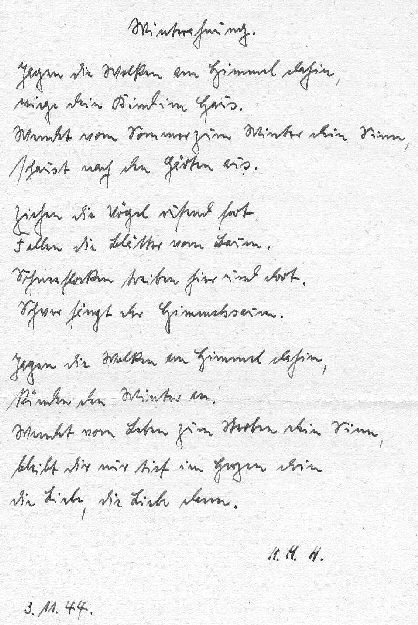 Winterahnung.
Jagen die Wolken am Himmel dahin,
wiege dein Kind im Haus.
Wendet vom Sommer zum Winter dein Sinn,
schaust nach den Gästen aus.
Ziehen die Vögel rufend fort
Fallen die Blätter vom Baum.
Schneeflocken treiben hier und dort.
Schwer hängt der Himmelssaum.
Jagen die Wolken am Himmel dahin,
Künden den Winter an.
Wendet vom Leben zum Sterben dein Sinn,
bleibt dir nur tief im Herzen drin
die Liebe, die Liebe dann.
H. H.
3. 11. 44.